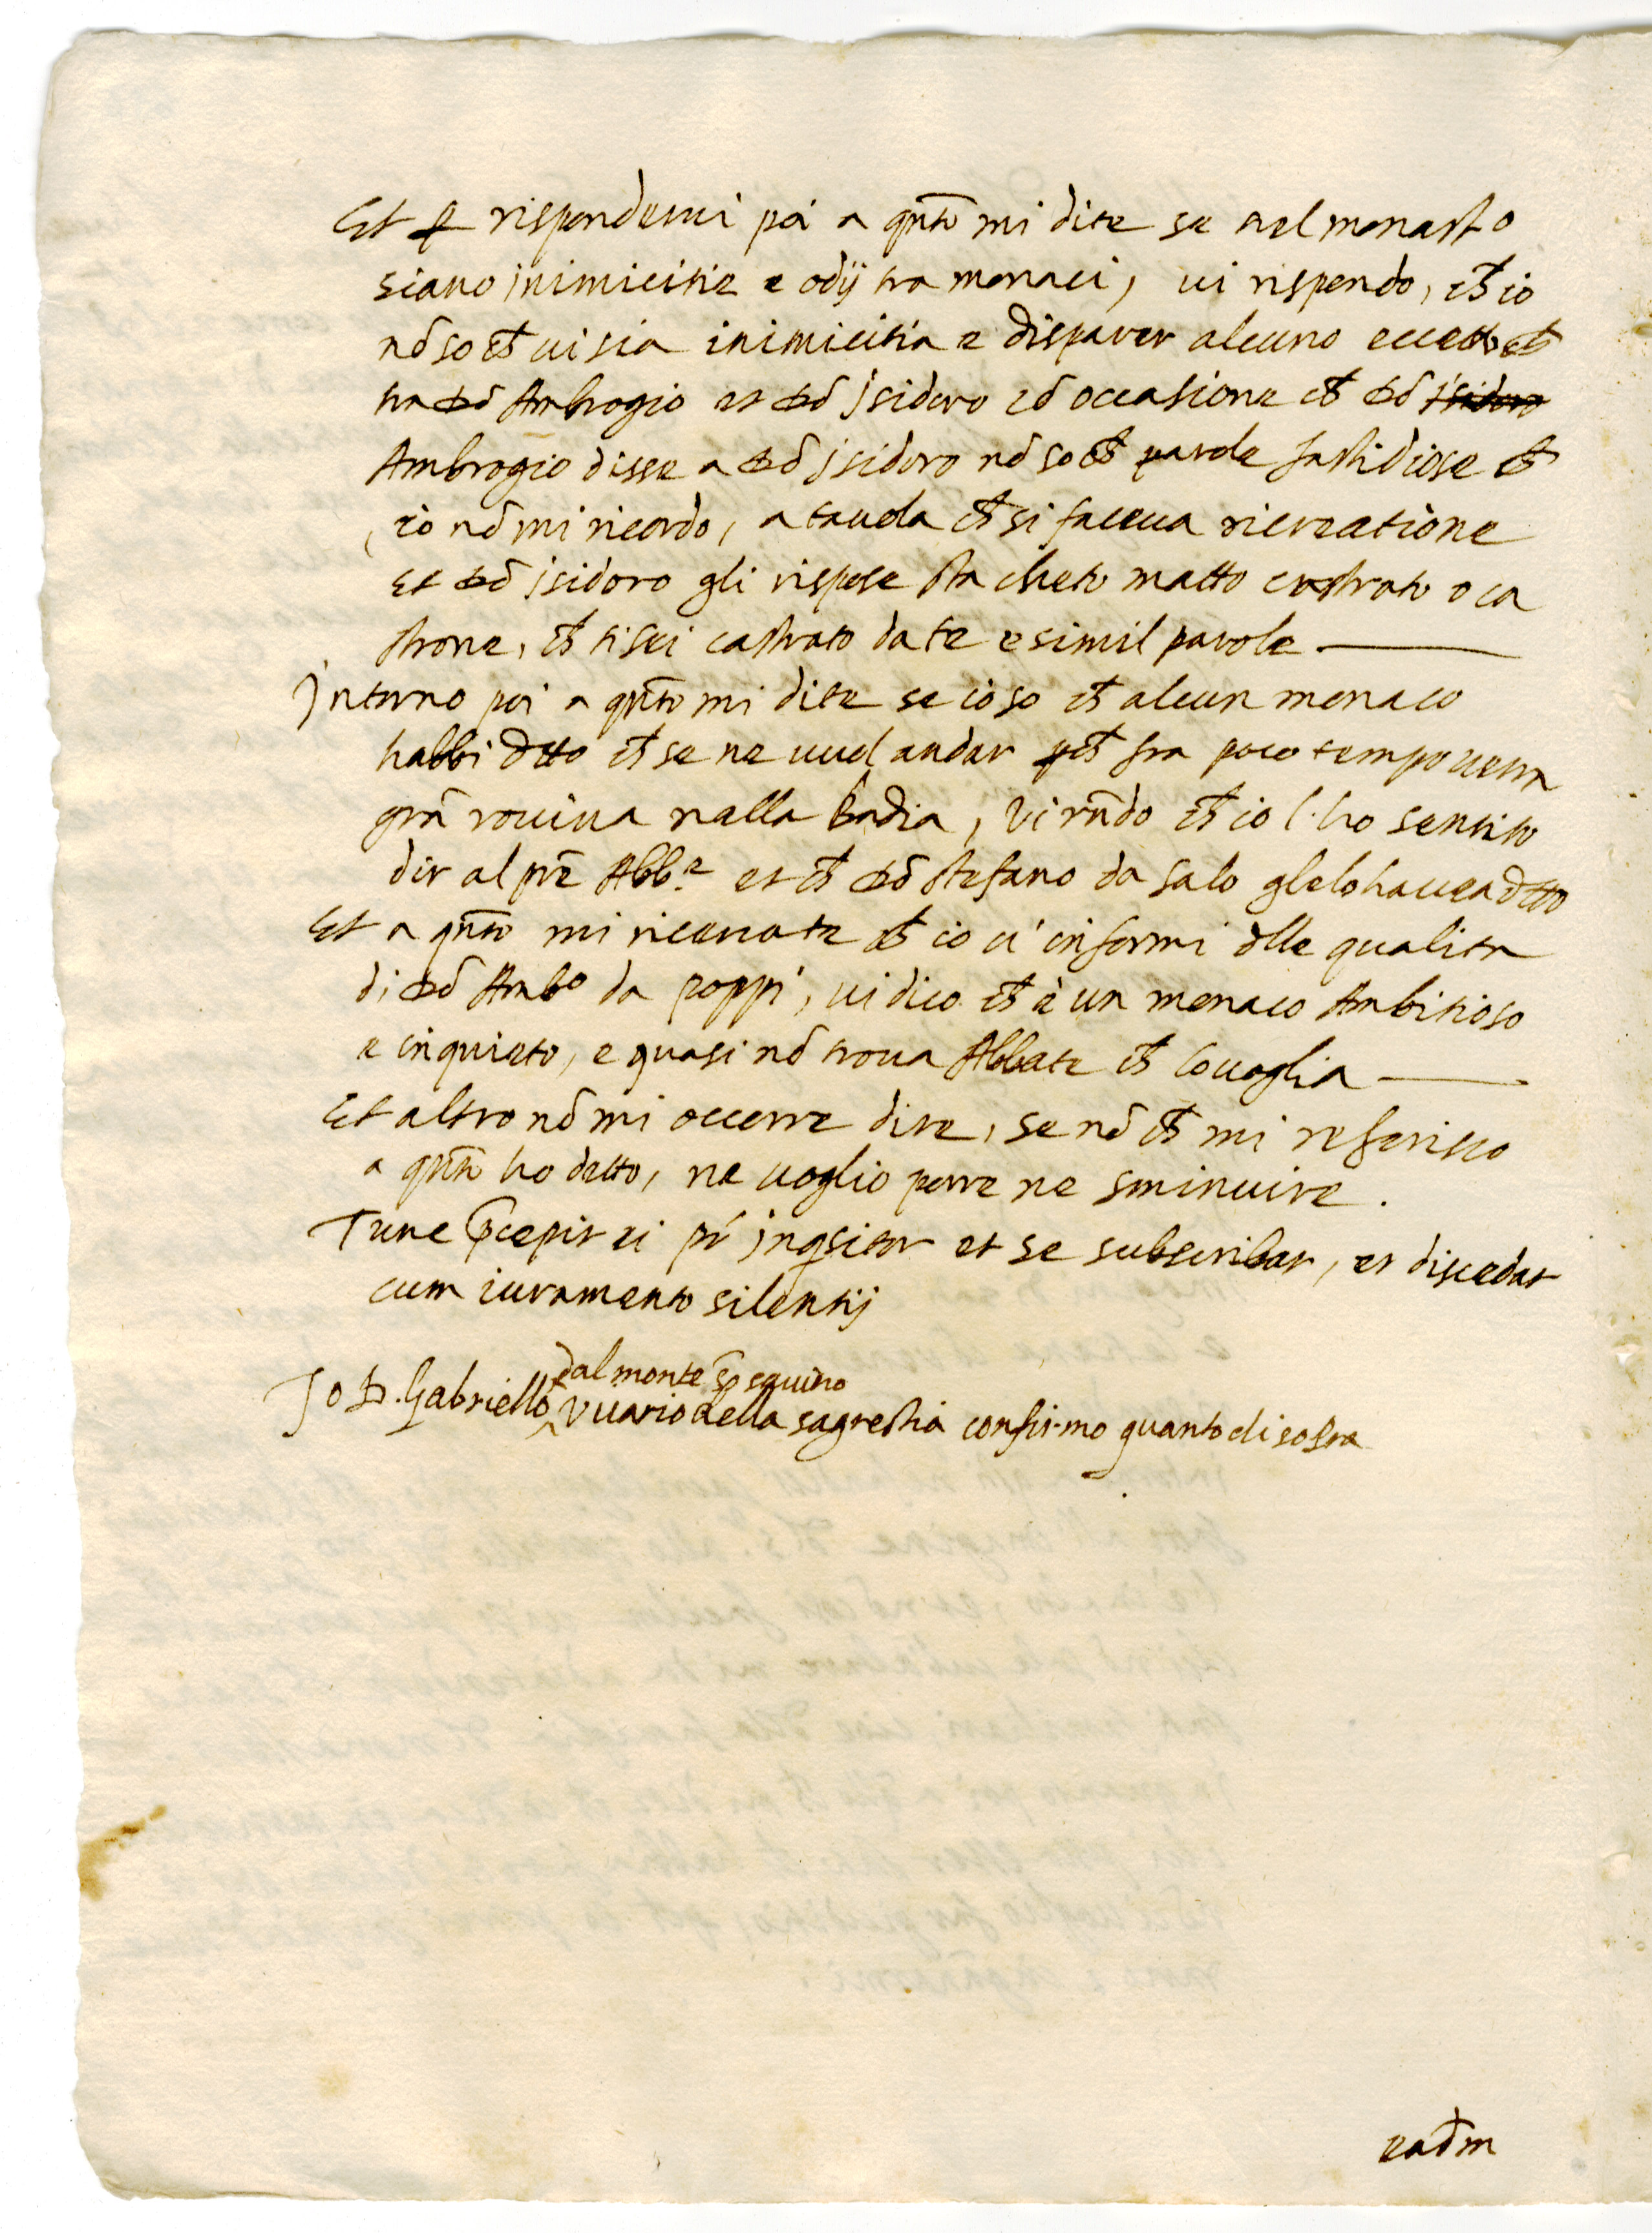 Et p rispondervi poi a qnto mi dite se nel monasto
siano inimicitie e odij tra monaci, vi rispondo, ch io
nō so ch vi sia inimicitia e disparer alcuno eccetto ch
tra dō Ambrogio et dō jsidoro cō occasione ch dō jsidoro
Ambrogio disse a dō jsidoro nō so ch parole fastidiose ch
io nō mi ricordo, a tauola ch si faceua ricreatione
et dō jsidoro gli rispose sta cheto matto castrato o ca
strone, ch ti sei castrato da te e simil parole
Jntorno poi a qnto mi dite se io so ch alcun monaco
habbi dtto ch se ne vuol andar pch fra poco tempo verra
grā rouina nella Badia, vi rn̄do ch io l'ho sentito
dir al prē Abb.e et ch dō stefano da salo glelo hauea dtto
Et a qnto mi ricercate ch io v' informi dlle qualita
di dō Ambo da poppi, vi dico ch è un monaco Ambitioso
e inquieto, e quasi nō troua Abbate ch lo uoglia
Et altro nō mi occorre dire, se nō ch mi referisco
a qnto ho detto, ne uoglio porre ne sminuire.
Tunc p̄cepit ei pr jnqsitor et se subscribat, et discedat
cum iuramento silentij
dal monte s̄o sauino
Jo D. Gabriello vicario della sagrestia confirmo quanto di sopra
eadm